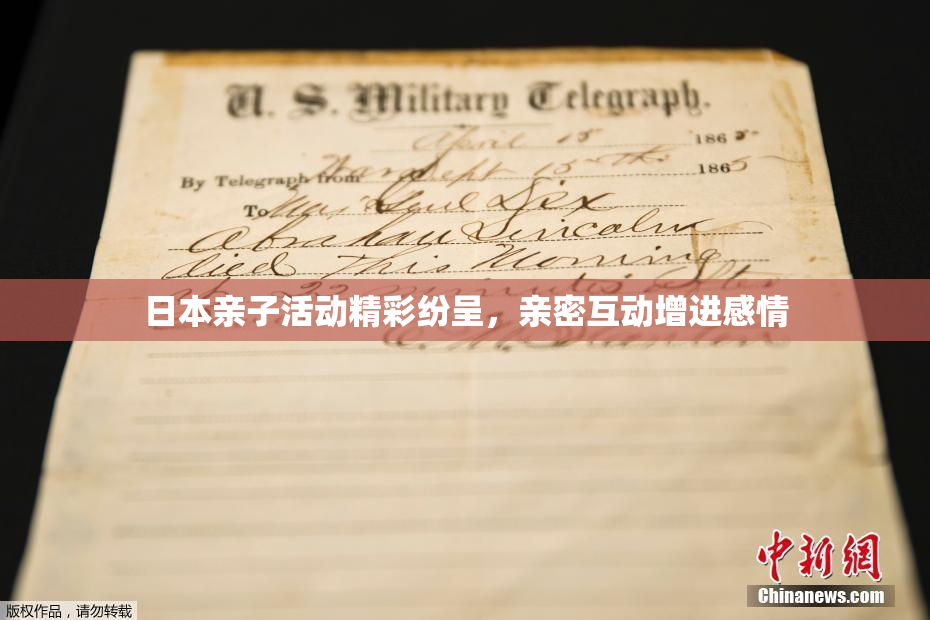 U. S. Military Telegraph.
April 15 1865-
By Telegraph from War Dept 15th 1865
To Maj Genl Dix
Abraham Lincoln
died This Morning
22 minutes after
日本亲子活动精彩纷呈，亲密互动增进感情
E. M. Stanton
中新网
Chinanews.com
版权作品，请勿转载